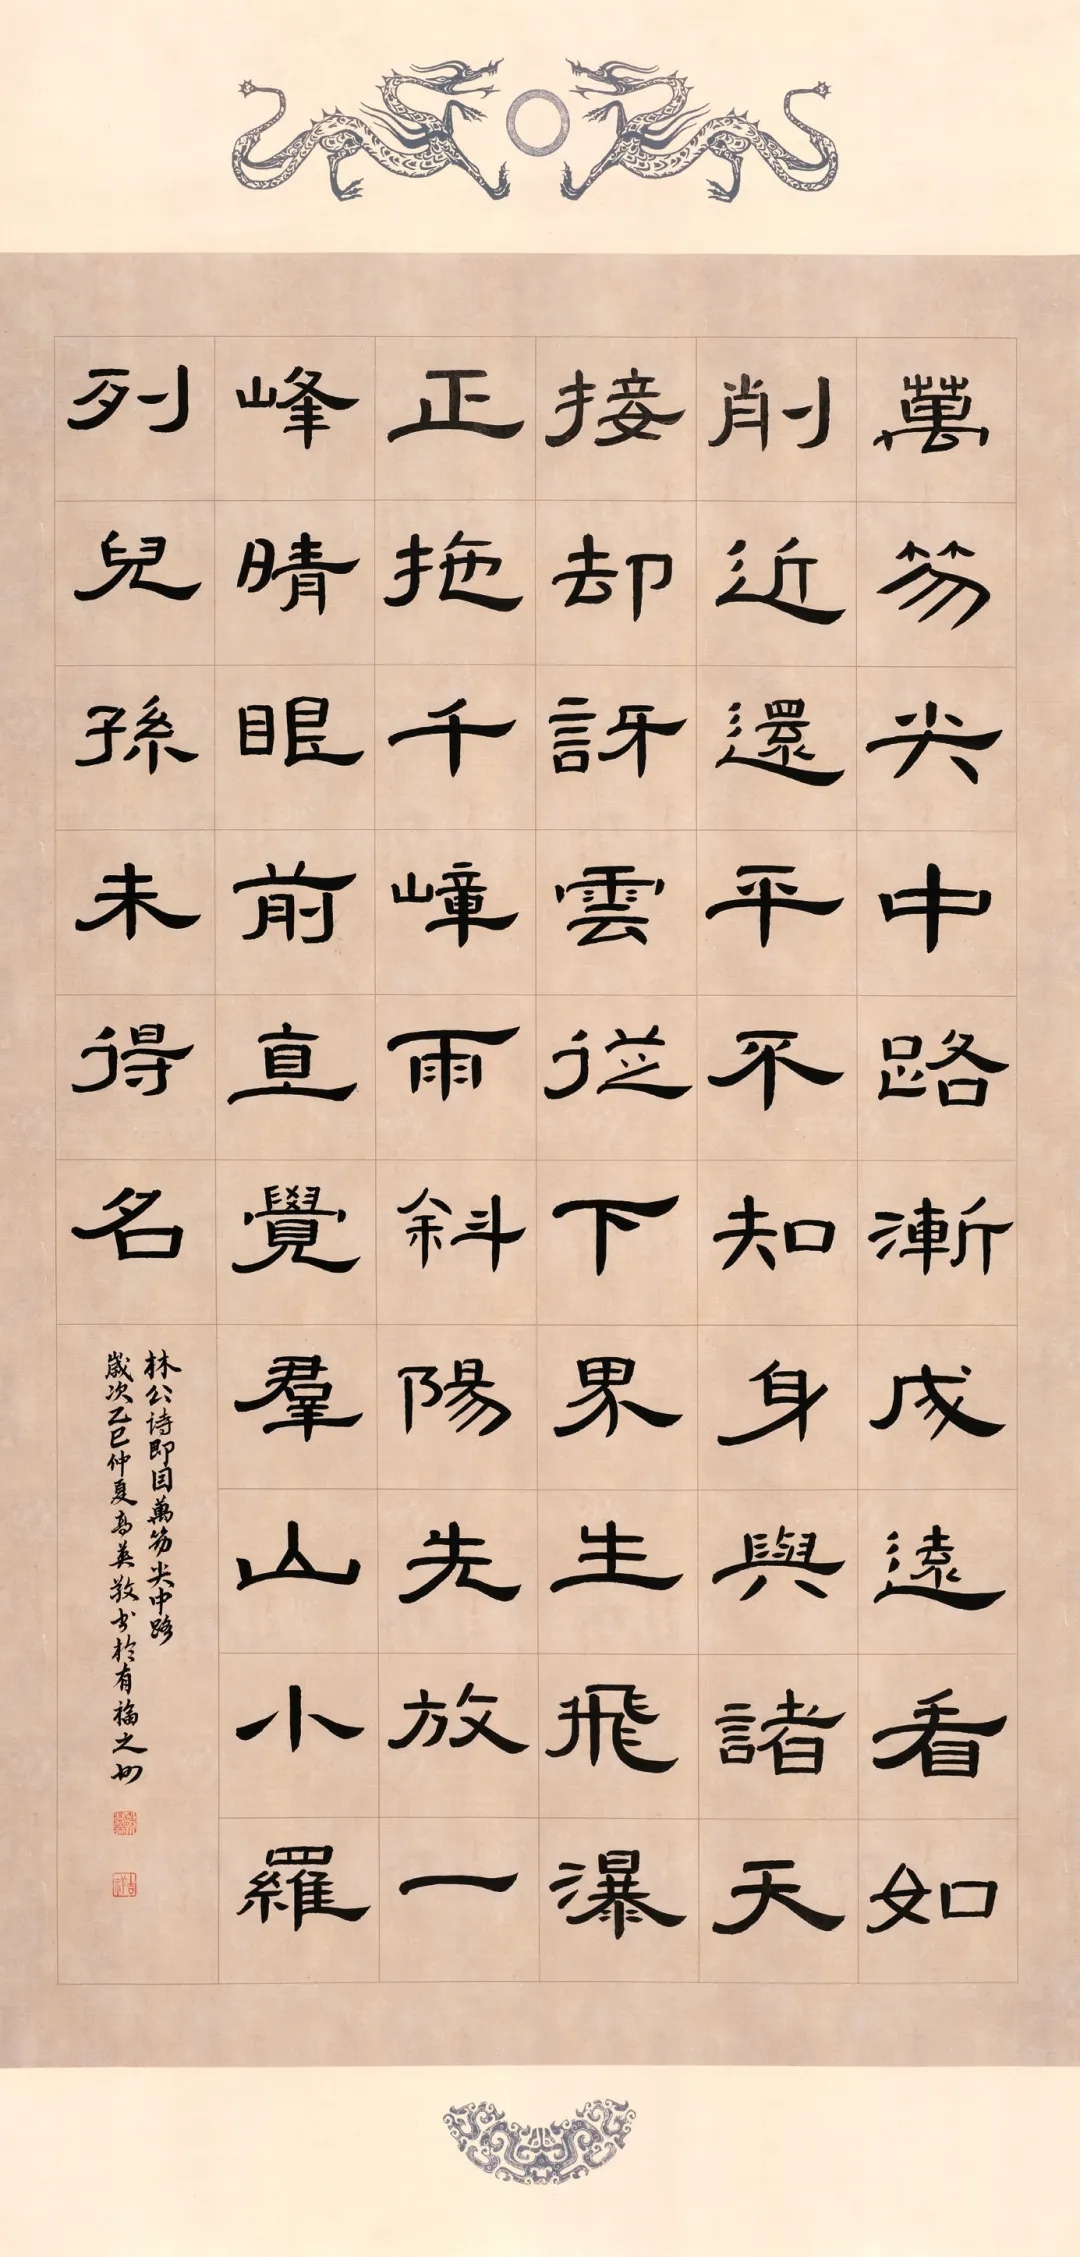 萬笏尖中路漸成遠看如
削近還平不知身與諸天
接却訝雲從下界生飛瀑
正拖千嶂雨斜陽先放一
峰晴眼前直覺羣山小羅
列兒孫未得名
林公诗即目萬笏尖中路
歲次乙巳仲夏高英敬书於有福之州